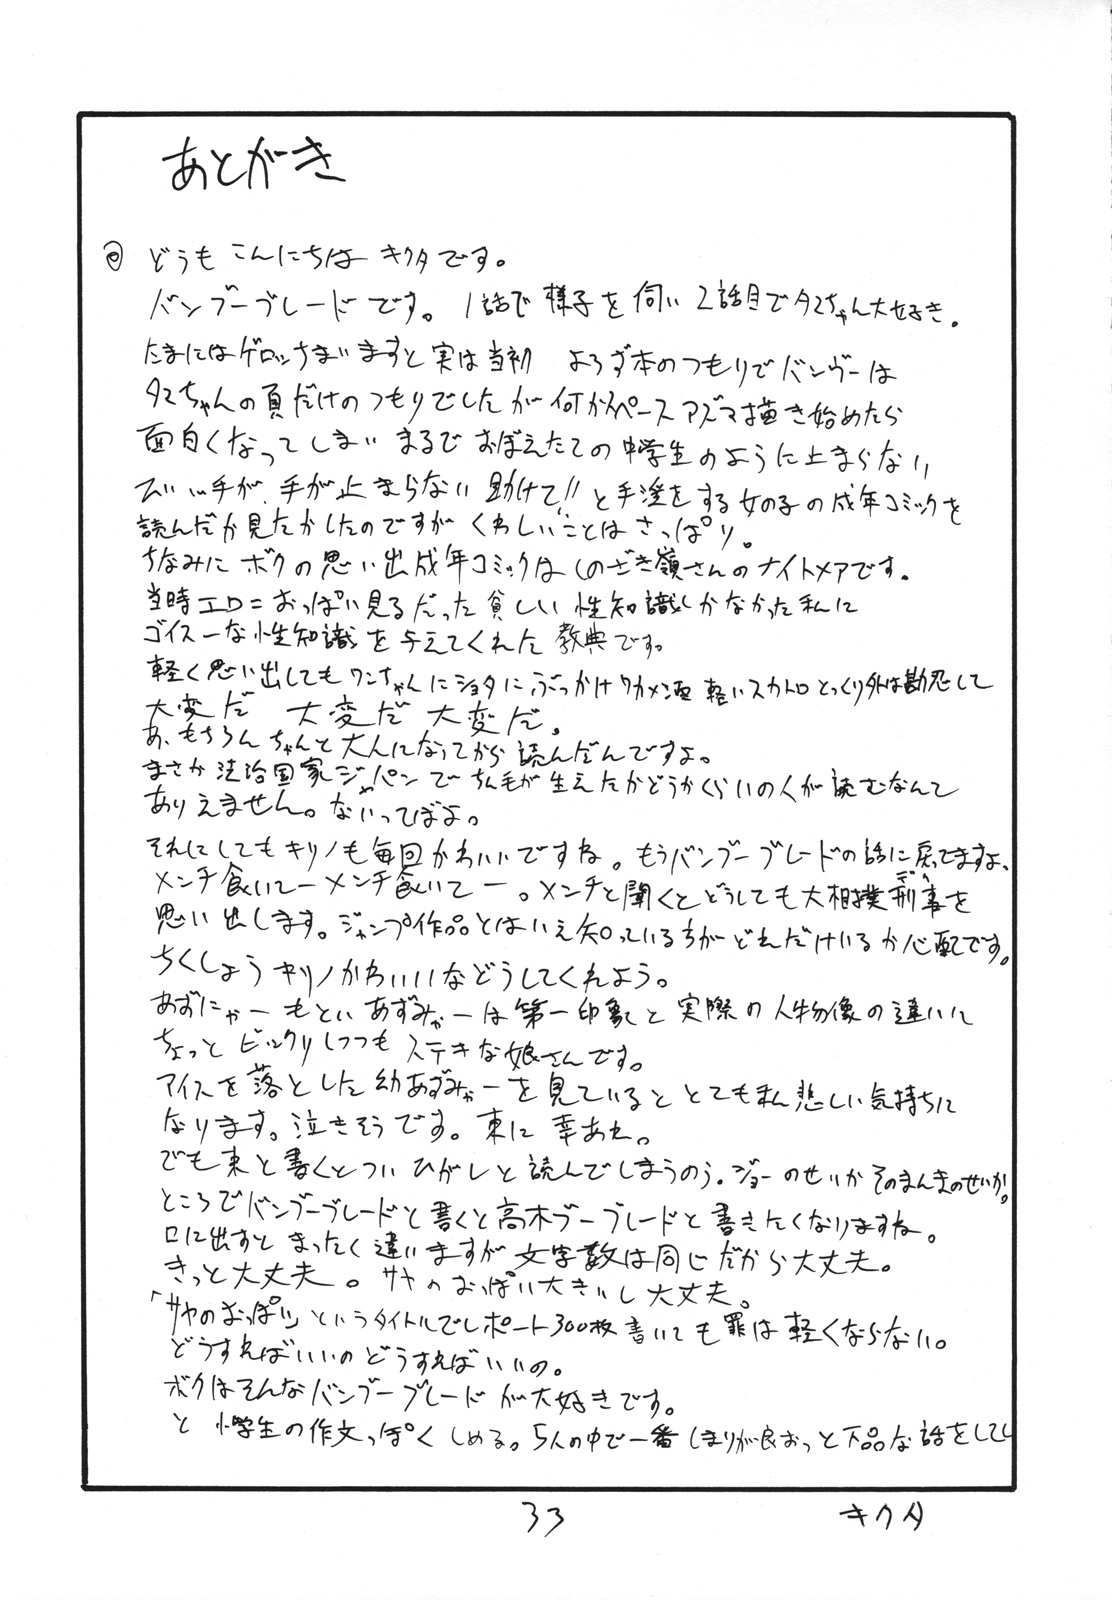 あとがき
どうも こんにちは キクタです。
バンブーブレードです。1話で様子を伺い2話目でタマちゃん大好き。
たまにはゲロッちまいますと実は当初 よろず本のつもりでバンブーは
タマちゃんの頁だけのつもりでしたが何かスペースアズマ描き始めたら
面白くなってしまい まるで おぼえたての中学生のように止まらない
手が、手が止まらない 助けて!! と手淫をする女の子の成年コミックを
読んだか見たかしたのですが くわしいことは さっぱり。
ちなみに ボクの思い出成年コミックは しのざき嶺さんのナイトメアです。
当時エロ=おっぱい見るだった貧しい 性知識しかなかった私に
ゴイスーな性知識を与えてくれた 教典です。
軽く思い出してもワンちゃんにショタにぶっかけワカメ酒 軽いスカトロ とっくり外は勘忍して
大変だ 大変だ 大変だ。
あ、もちろん ちゃんと大人になってから 読んだんですよ。
まさか 法治国家ジャパンで ちん毛が生えたかどうかくらいの人が読むなんて
ありえません。ないってばよ。
それにしてもキリノも毎回かわいいですね。もうバンブーブレードの話に戻ってますよ、
メンチ食いてーメンチ食いてー。メンチと聞くとどうしても大相撲刑事を
思い出します。ジャンプ作品とはいえ知っている方がどれだけいるか心配です。
ちくしょう キリノかわいいなどうしてくれよう。
あずにゃーもといあずみゃーは第一印象と実際の人物像の違いに
ちょっとビックリしつつもステキな娘さんです。
アイスを落とした幼あずみゃーを見ていると とても私悲しい気持ちに
なります。泣きそうです。東に幸あれ。
でも東と書くとつい ひがしと読んでしまうのう。ジョーのせいか そのまんまのせいか。
ところでバンブーブレードと書くと高木ブーブレードと書きたくなりますね。
口に出すと まったく違いますが文字数は同じだから大丈夫。
きっと大丈夫。サヤのおっぱい大きいし大丈夫。
「サヤのおっぱい」というタイトルでレポート300枚書いても罪は軽くならない。
どうすればいいの どうすればいいの。
ボクはそんなバンブーブレードが大好きです。
と 小学生の作文っぽく しめる。5人の中で一番 しまりが良おっと下品な話をしてし
33
キクタ